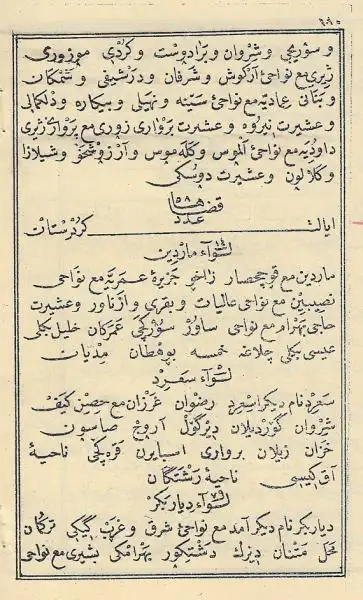 و سؤرچی و شروان و برادوست و کردی موزوری
ژیری مع نواحئ ارکوش و شرفان و درشیفی و شمکان
و بنانی عمادیه مع نواحئ سینه و نهیلی و بیکاره و دلکمالی
و عشیرت نیروه و عشیرت برواری زوری مع برواری ژیری
داودیه مع نواحئ الموس و کله موس و ارز و شیلازا
و کلالون و عشیرت دوسکی
قضاها
۵۸
عدد
ایالت کردستان
لوآء ماردین
ماردین مع قوچحصار زاخو جزیرۀ عمریه مع نواحی
نصیبین مع نواحی عالیات و بقری و ازناور و عشیرت
حاجی بهرام مع نواحی ساور سورکچی عمرکان خلیل بکلی
عیسی بکلی چلاغه خمسه بوهطان مدیات
لوآء سعرد
سعرد نام دیکر اسعرد رضوان غرزان مع حصن کیف
شروان کوردیلان دیرکول اروح صاصون
خزان زیلان برواری اسبایرن قره کچی ناحیۀ
آق کیسی ناحیۀ رشتکان
لوآء دیاربکر
دیاربکر نام دیکر آمد مع نواحئ شرق و غرب کیکی ترکان
محل متنان دیرک دشتکور بهرامکی بشیری مع نواحی